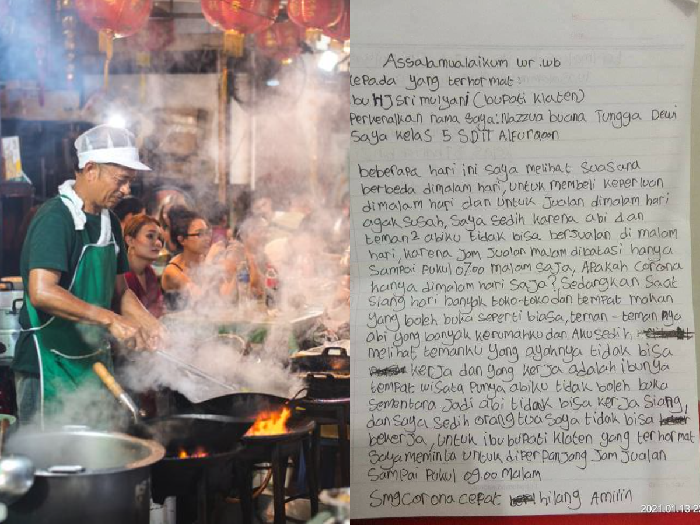 Assalamualaikum wr.wb
kepada yang terhormat:
ibu HJ Sri mulyani (bupati klaten)
Perkenalkan nama Saya: Nazzua buana Tungga Dewi
Saya kelas 5 SDIT Alfurqoon
beberapa hari ini saya melihat Suasana
berbeda dimalam hari, untuk membeli keperluan
dimalam hari dan untuk Jualan dimalam hari
agak susah, Saya Sedih karena abi dan
teman2 abiku tidak bisa berJualan di malam
hari, karena Jam Jualan malam dibatasi hanya
Sampai Pukul 07.00 malam saJa, Apakah Corona
hanya dimalam hari Saja? Sedangkan Saat
Siang hari banyak toko-toko dan tempat makan
yang boleh buka seperti biasa, teman-teman nya
abi yang banyak kerumahku dan Aku Sedih,
melihat temanku yang ayahnya tidak bisa
kerja dan yang kerja adalah ibunya
tempat wisata punya abiku tidak boleh buka
Sementara Jadi abi tidak bisa kerja Siang,
dan saya Sedih orang tua Saya tidak bisa
bekerja, untuk ibu bupati Klaten yang terhormat
Saya meminta untuk diperpanjang Jam Jualan
Sampai Pukul 09.00 Malam
Smg Corona cepat hilang Amiiin
2021.01.13